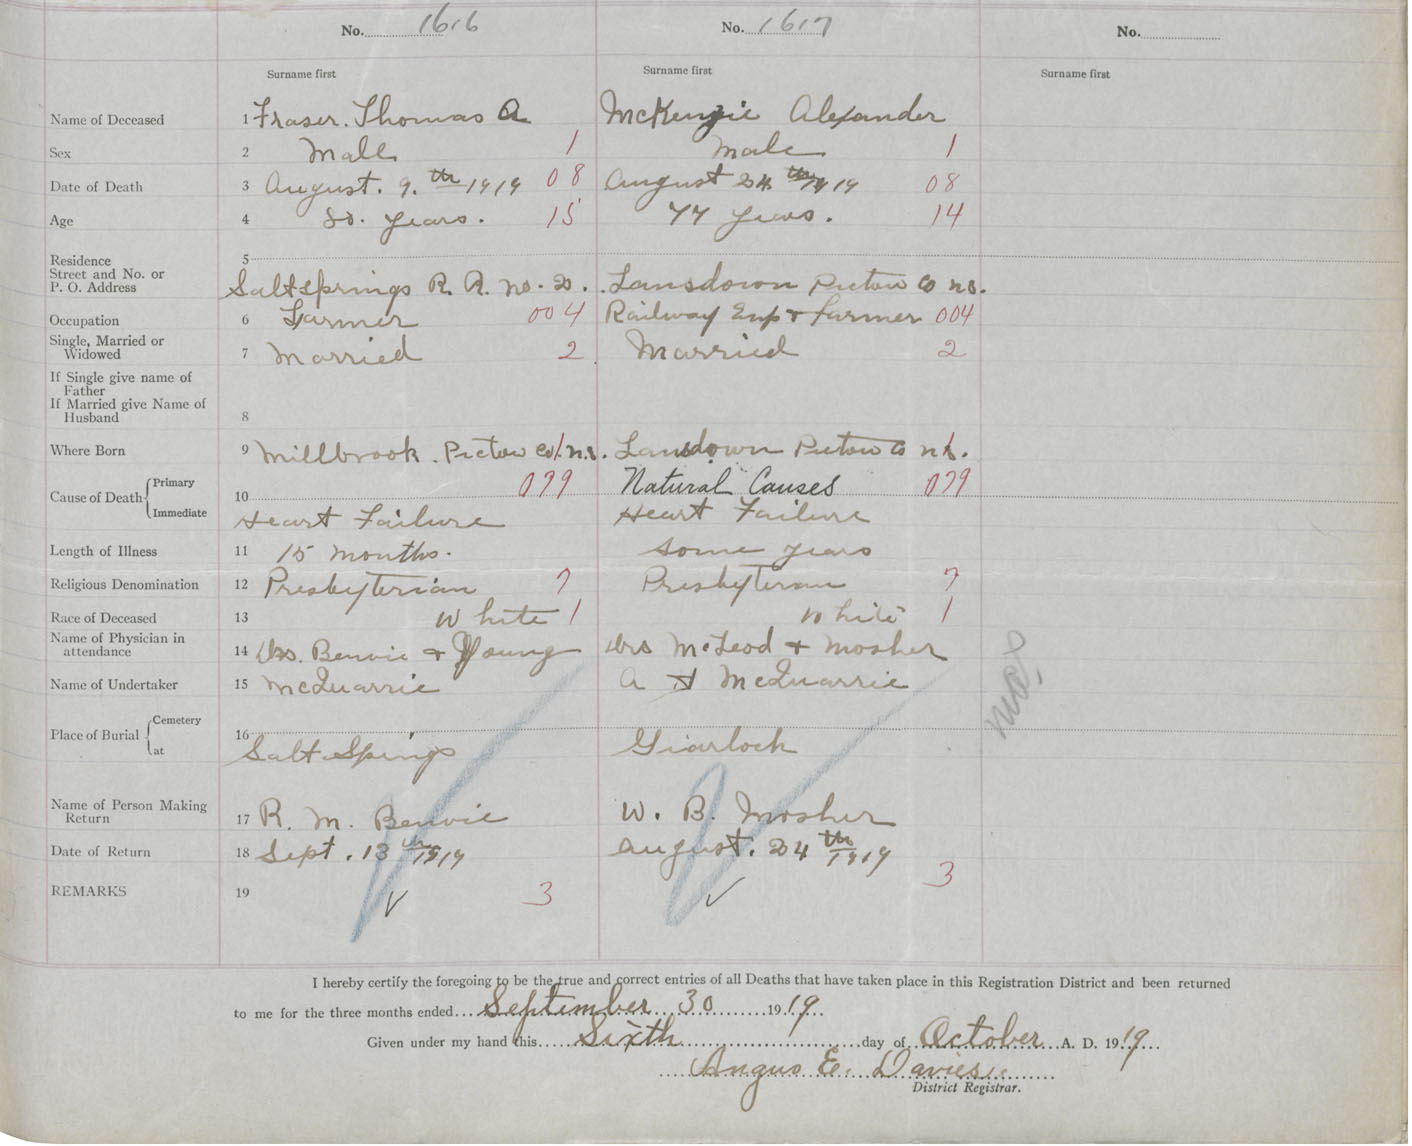 No. 1616 No. 1617 No.
Surname first Surname first Surname first
Name of Deceased 1 Fraser. Thomas A McKenzie Alexander
Sex 2 Male 1 Male 1
Date of Death 3 August. 9. th 1919 08 August 24. th 1919 08
Age 4 80. years. 15 77 years. 14
Residence 5
Street and No. or
P. O. Address Saltsprings R. R. No. 2. Lansdown Pictou Co N.S.
Occupation 6 Farmer 004 Railway Emp + farmer 004
Single, Married or
Widowed 7 Married 2 Married 2
If Single give name of
Father
If Married give Name of
Husband 8
Where Born 9 Millbrook. Pictou Co. N.S. Lansdown Pictou Co N.S.
Cause of Death Primary 10 079 Natural Causes 079
Immediate Heart Failure Heart Failure
Length of Illness 11 15 months. some years
Religious Denomination 12 Presbyterian 7 Presbyterian 7
Race of Deceased 13 White 1 White 1
Name of Physician in
attendance 14 Drs. Benvie + Young Drs McLeod + Mosher
Name of Undertaker 15 McQuarrie A McQuarrie
Place of Burial Cemetery 16
at Salt Springs Giarloch
Name of Person Making
Return 17 R. M. Benvie W. B. Mosher
Date of Return 18 Sept. 13 th 1919 August. 24 th 1919
REMARKS 19 3 3
I hereby certify the foregoing to be the true and correct entries of all Deaths that have taken place in this Registration District and been returned
to me for the three months ended September 30 1919
Given under my hand this Sixth day of October A. D. 1919
Angus E. Davies
District Registrar.